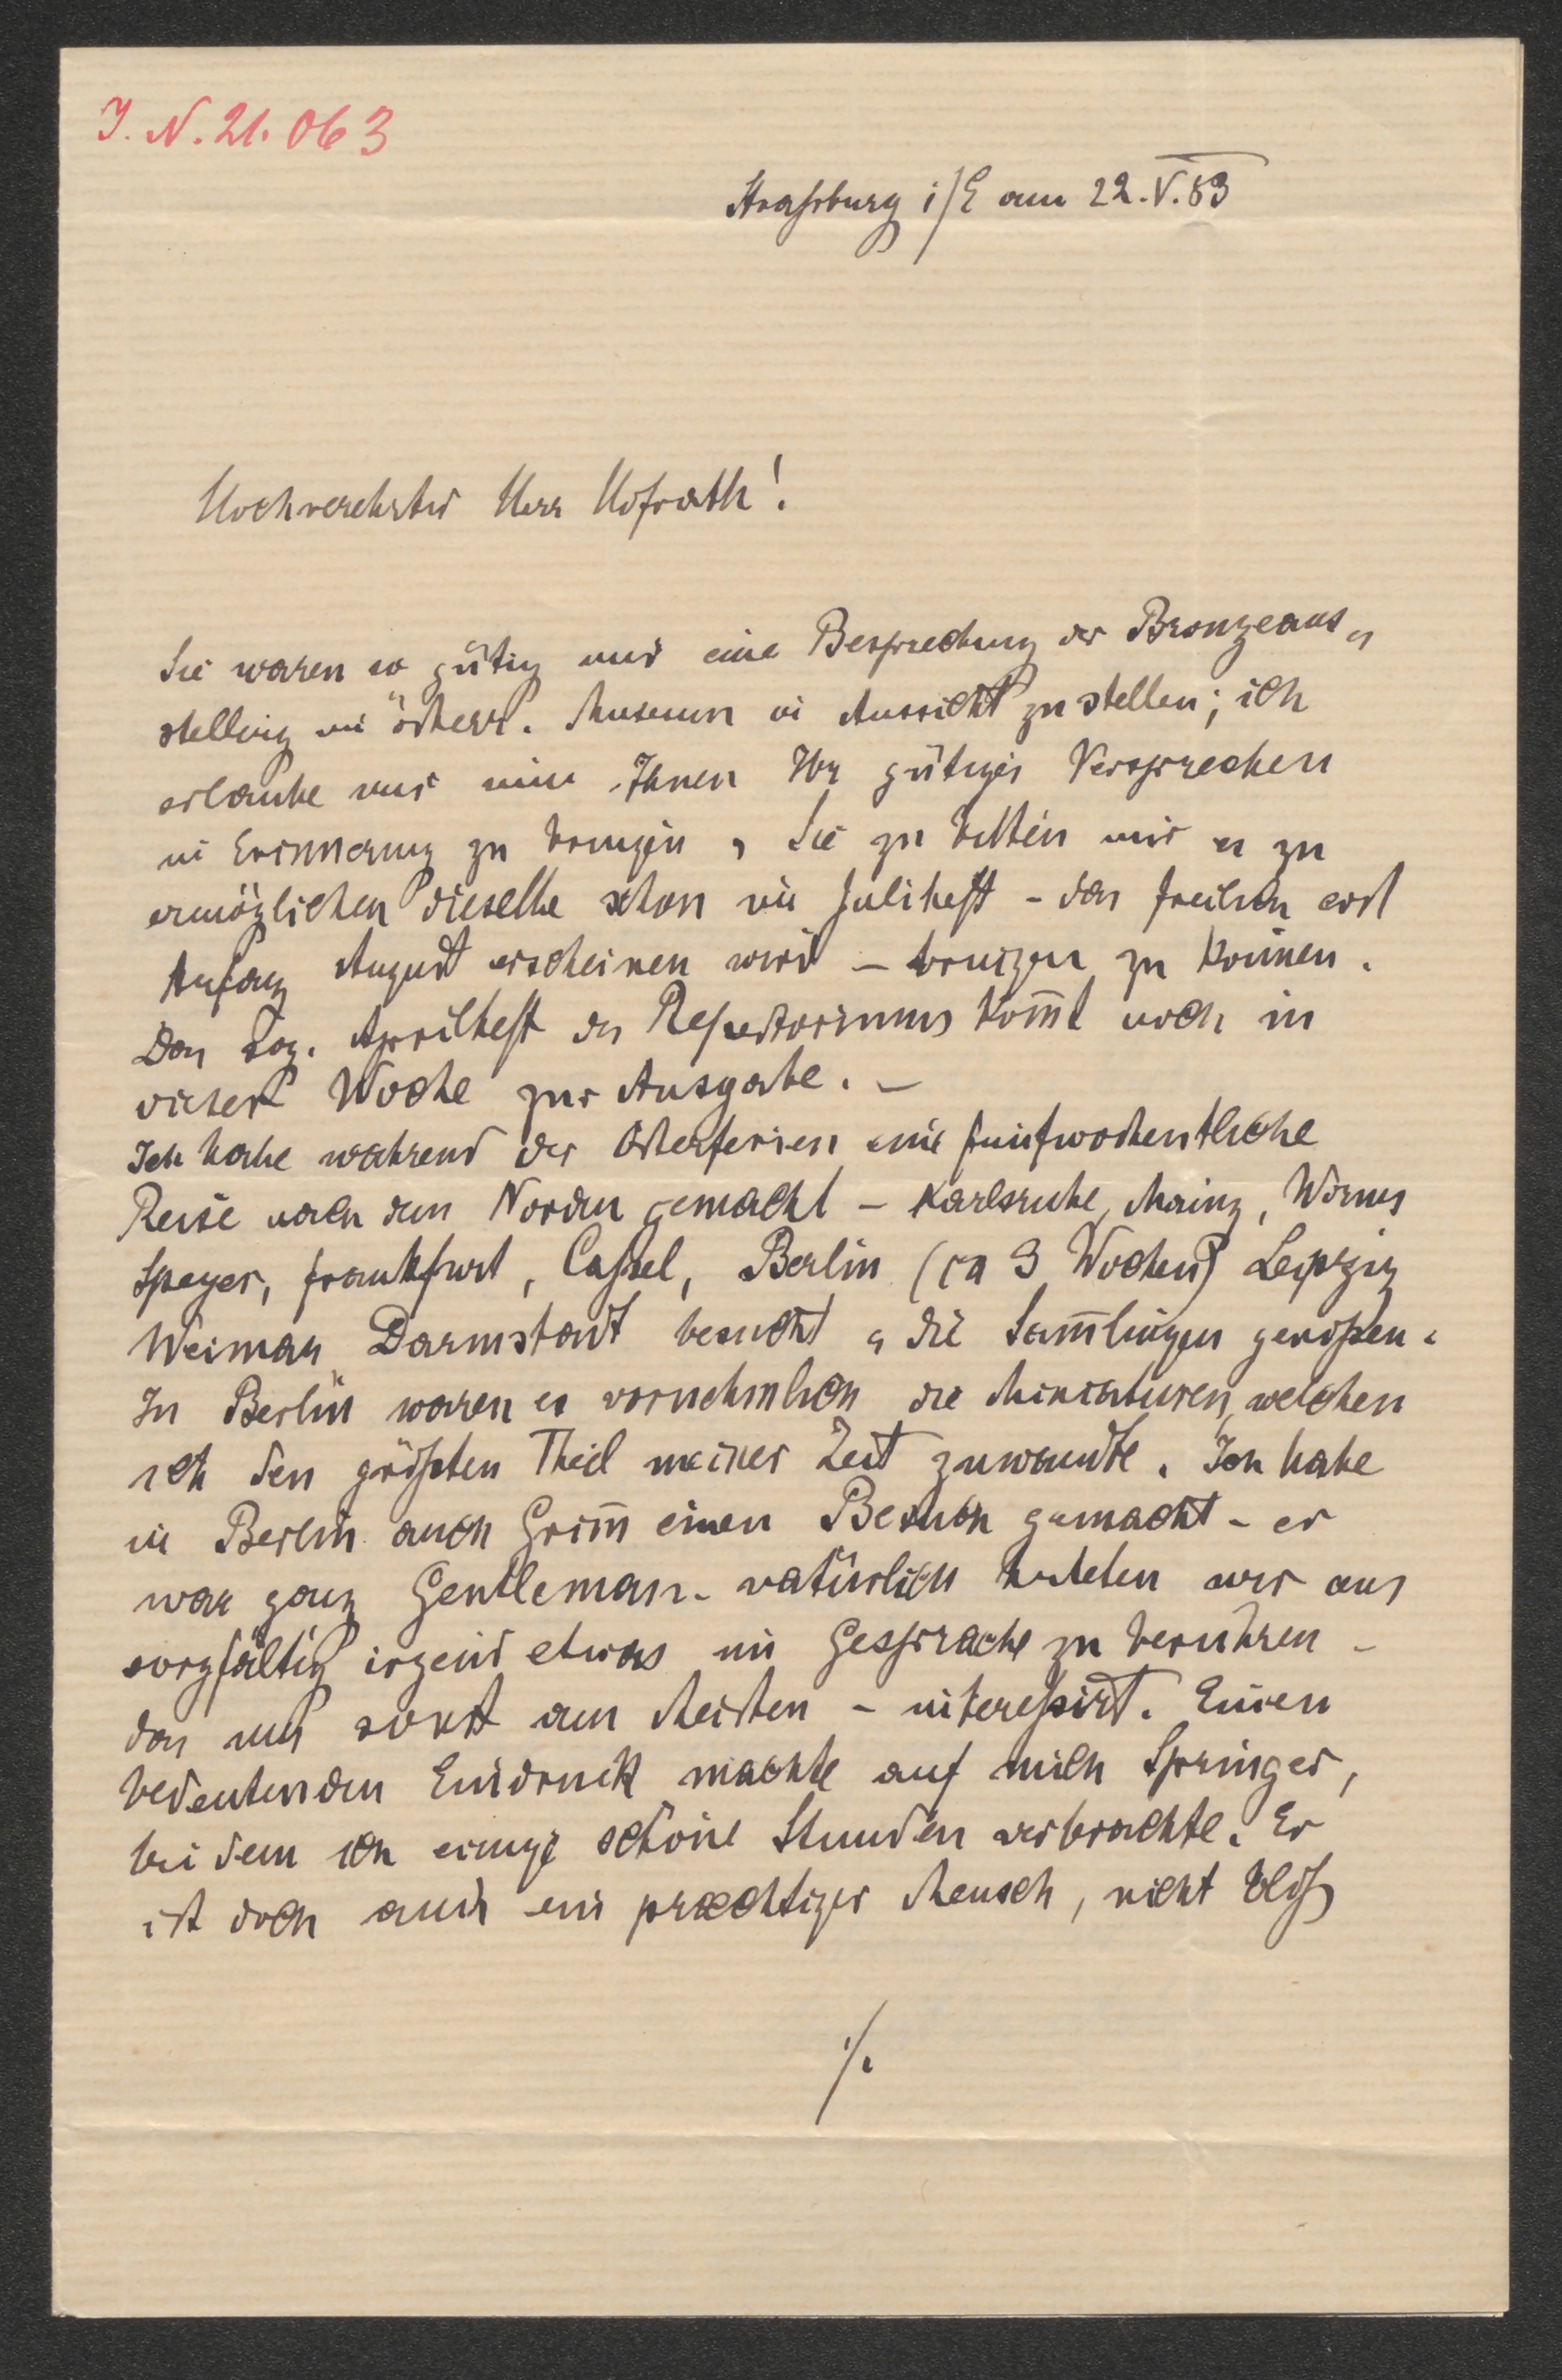 I. N. 21.063
Straßburg i/E am 22.V.83
Hochverehrter Herr Hofrath!
Sie waren so gütig mir eine Besprechung der Bronzeaus-
stellung im österr. Museum in Aussicht zu stellen; ich
erlaube mir nun Ihnen Ihr gütiges Versprechen
in Erinnerung zu bringen, Sie zu bitten mir es zu
ermöglichen dieselbe schon im Juliheft - das freilich erst
Anfang August erscheinen wird - bringen zu können.
Das sog. Aprilheft des Repertoriums kom̄t noch in
dieser Woche zur Ausgabe. -
Ich habe während der Osterferien eine fünfwochentliche
Reise nach dem Norden gemacht - Karlsruhe, Mainz, Worms
Speyer, Frankfurt, Cassel, Berlin (ca 3 Wochen) Leipzig
Weimar, Darmstadt besucht u die Sam̄lungen genossen.
In Berlin waren es vornehmlich die Miniaturen, welchen
ich den größten Theil meiner Zeit zuwandte. Ich habe
in Berlin auch Grim̄ einen Besuch gemacht - er
war ganz Gentleman - natürlich hüteten wir uns
sorgfältig irgend etwas im Gespräche zu berühren -
das uns sonst am Meisten - interessirt. Einen
bedeutenden Eindruck machte auf mich Springer,
bei dem ich einige schöne Stunden verbrachte. Er
ist doch auch ein præchtiger Mensch, nicht bloß
./.